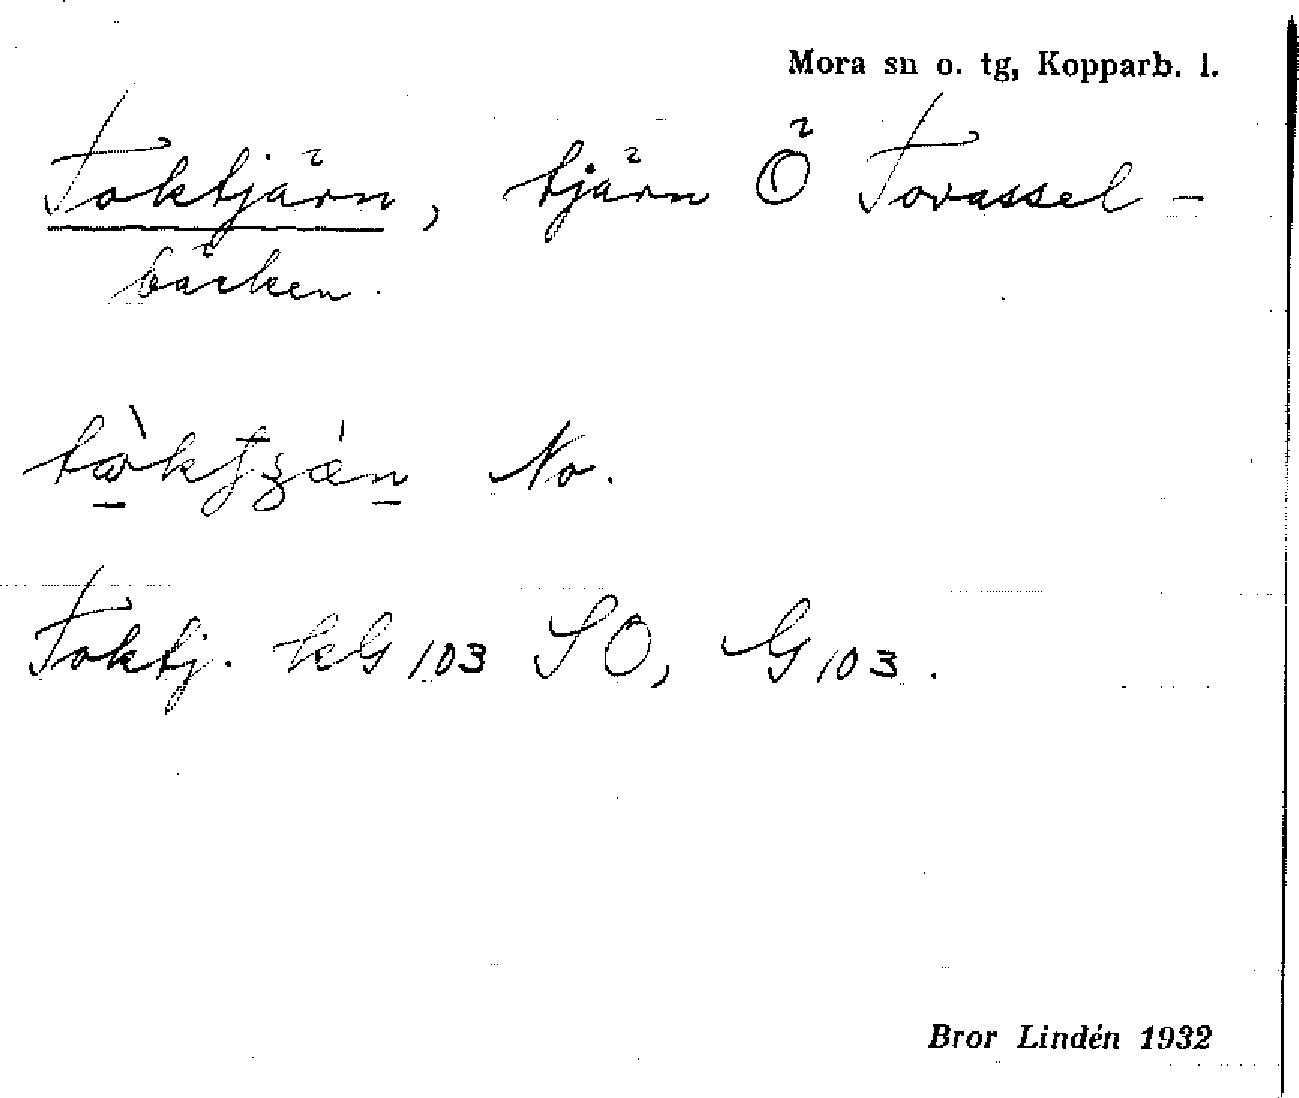 Mora sn o. tg, Kopparb. l.
Toktjärn, tjärn Ö Tovassel-
bäcken.
No.
Toktj. kG 103 SO, G 103.
Bror Lindén 1932